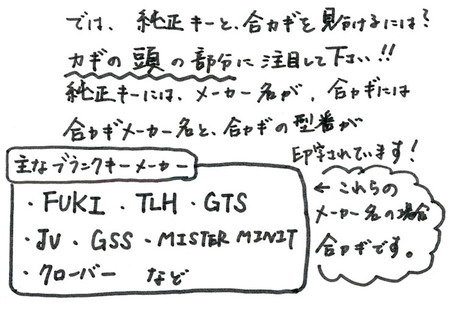 では、純正キーと、合カギを見分けるには?
カギの頭の部分に注目して下さい!!
純正キーには、メーカー名が、合カギには
合カギメーカー名と、合カギの型番が
印字されています!
主なブランクキーメーカー
・FUKI ・TLH ・GTS
・JV ・GSS ・MISTER MINIT
・クローバー など
← これらの
メーカー名の場合
合カギです。